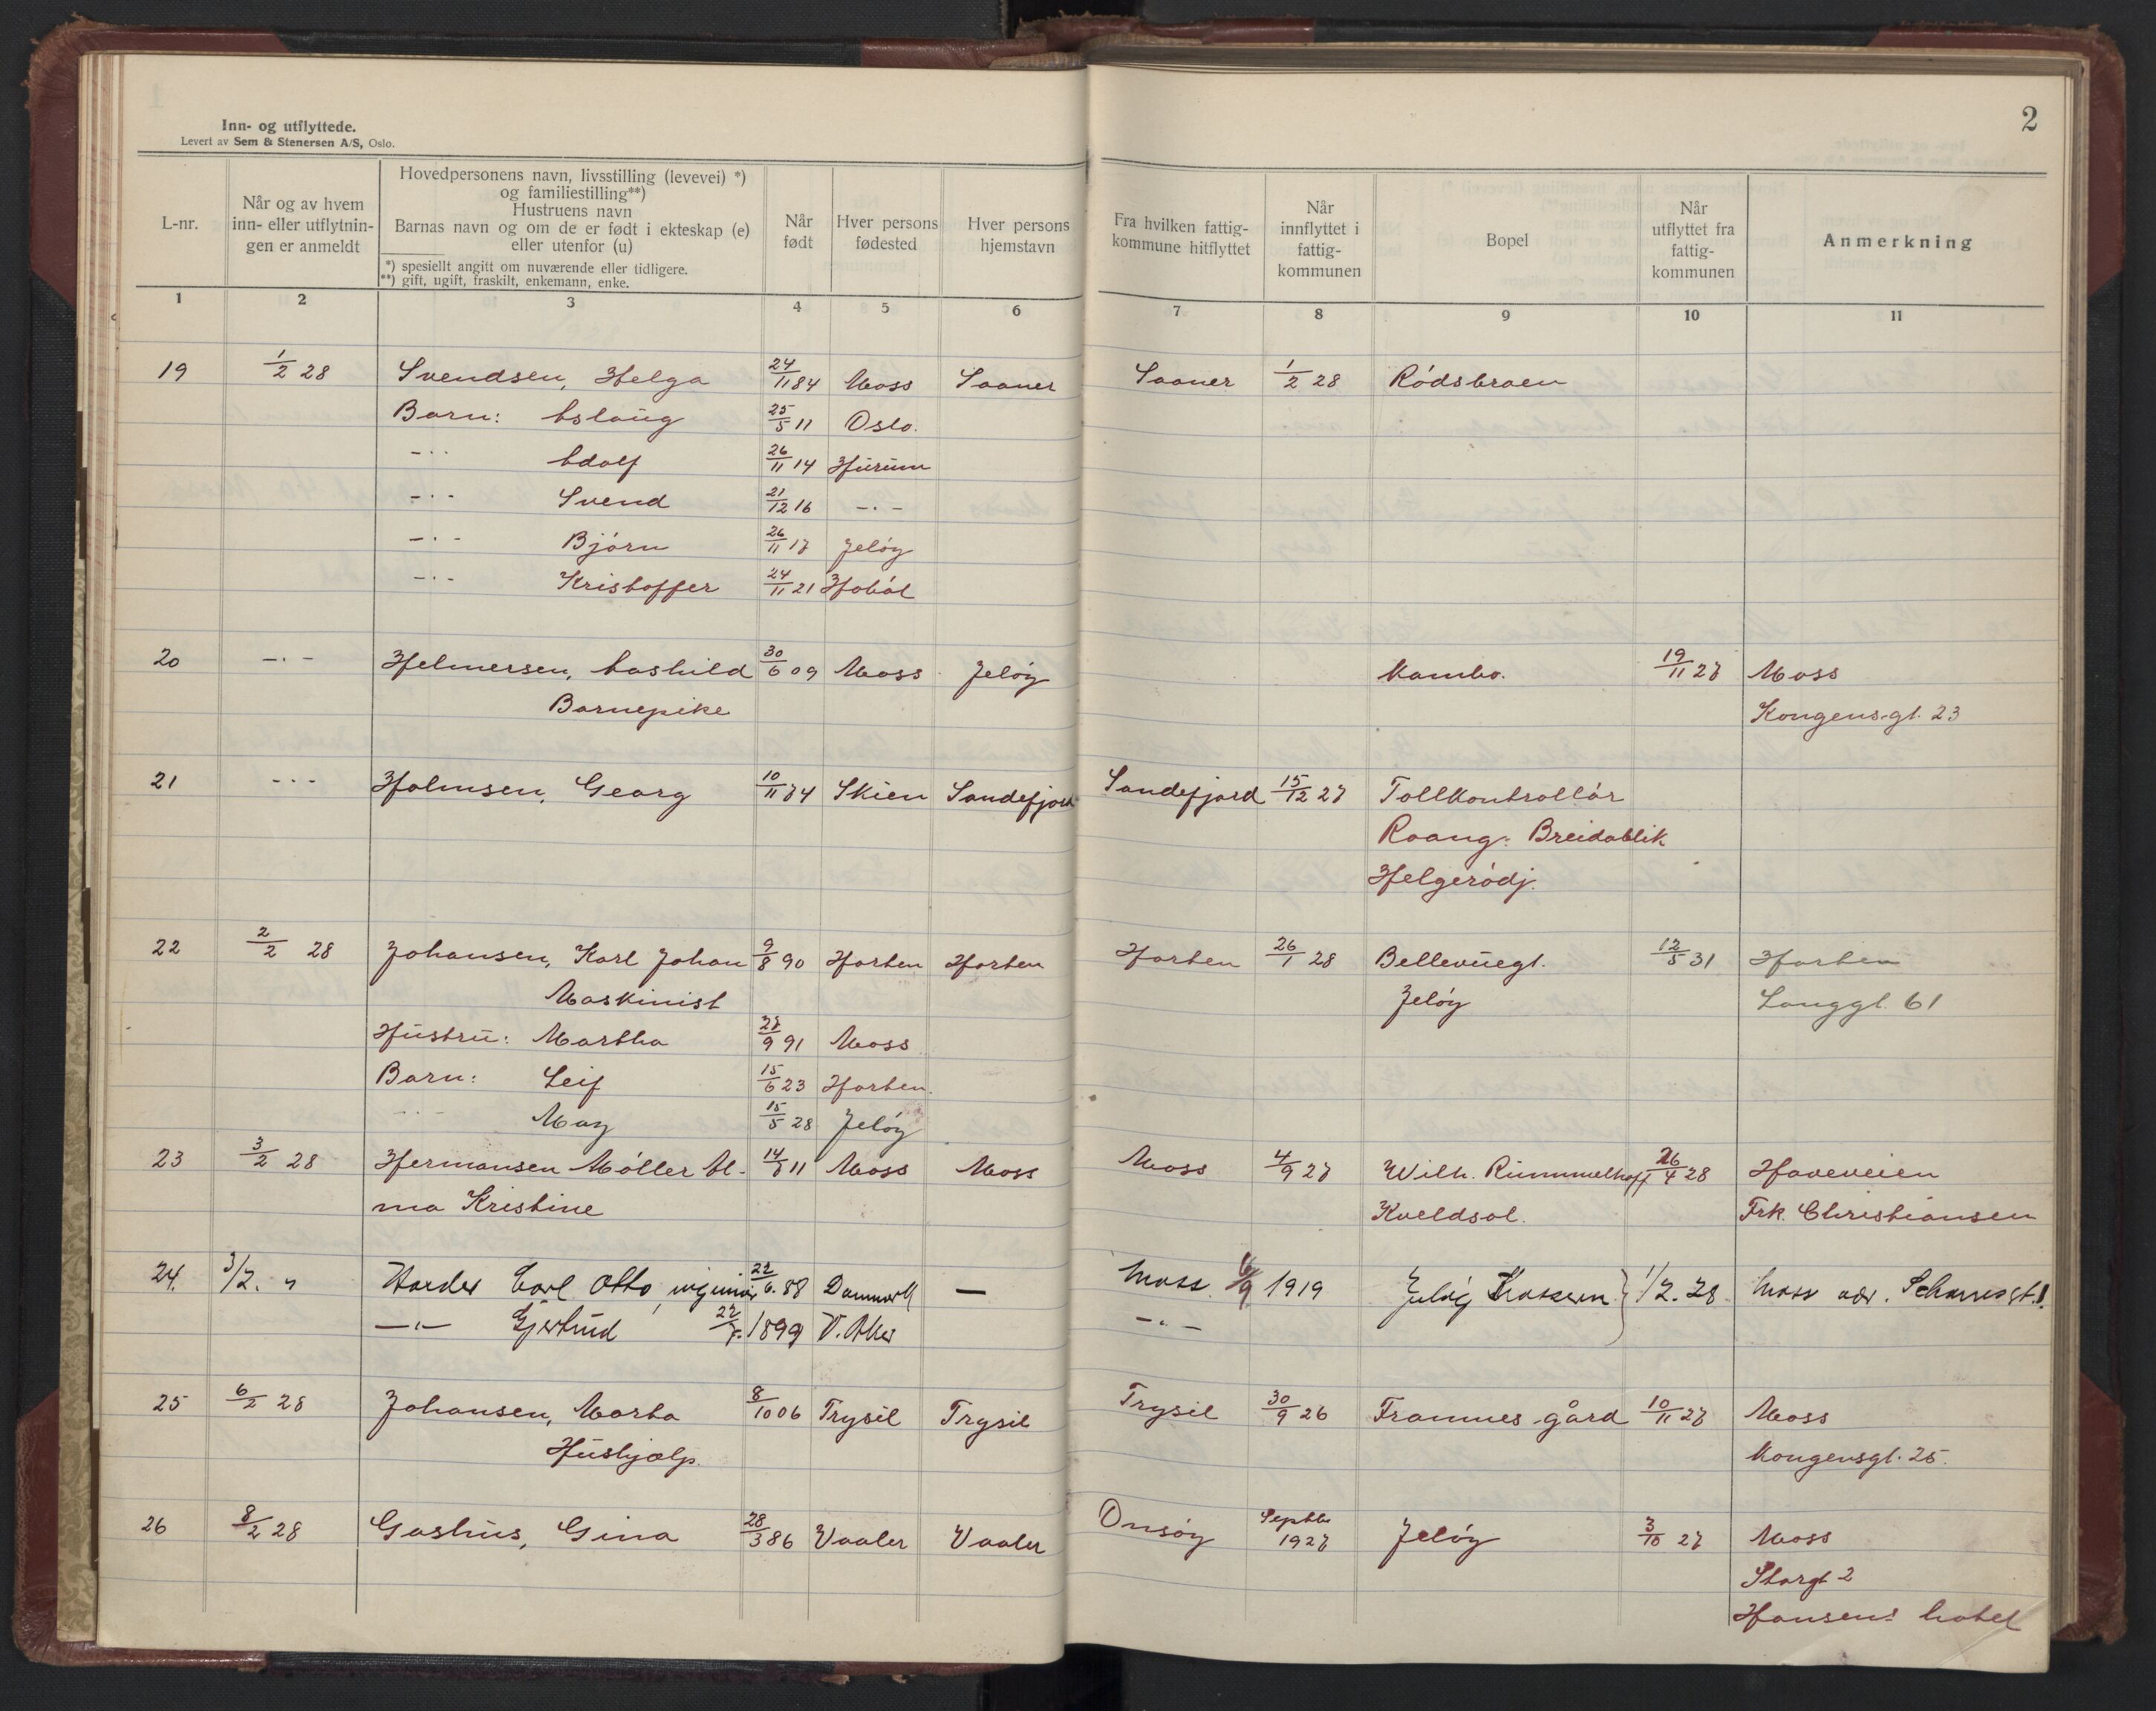 2
Inn- og utflyttede.
Levert av Sem & Stenersen A/S, Oslo.
L-nr.
Når og av hvem
inn- eller utflytnin-
gen er anmeldt
Hovedpersonens navn, livsstilling (levevei) *)
og familiestilling**)
Hustruens navn
Barnas navn og om de er født i ekteskap (e)
eller utenfor (u)
*) spesiellt angitt om nuværende eller tidligere.
**) gift, ugift, fraskilt, enkemann, enke.
Når
født
Hver persons
fødested
Hver persons
hjemstavn
Fra hvilken fattig-
kommune hitflyttet
Når
innflyttet i
fattig-
kommunen
Bopel
Når
utflyttet fra
fattig-
kommunen
Anmerkning
1 2 3 4 5 6 7 8 9 10 11
19 1/2 28 Svendsen, Helga 24/11 84 Moss Saaner Saaner 1/2 28 Rødsbraen
Barn: Aslaug 25/5 11 Oslo.
-"- Adolf 26/11 14 Hurum
-"- Svend 21/12 16 -"-
-"- Bjørn 26/11 17 Jeløy
-"- Kristoffer 24/11 21 Hobøl
20 -"- Helmersen, Aashild 30/6 09 Moss Jeløy Kambo. 19/11 27 Moss
Barnepike Kongensgt. 23
21 -"- Holmsen, Georg 10/11 74 Skien Sandefjord Sandefjord 15/12 27 Tollkontrollør
Raang. Breidablik
Helgerødj.
22 2/2 28 Johansen, Karl Johan 9/8 90 Horten Horten Horten 26/1 28 Bellevuegt. 12/5 31 Horten
Maskinist Jeløy Langgt. 61
Hustru: Martha 27/9 91 Moss
Barn: Leif 15/6 23 Horten.
-"- May 15/5 28 Jeløy
23 3/2 28 Hermansen Møller Al- 14/7 11 Moss Moss Moss 4/9 27 Wilh. Rummelhoff 26/4 28 Haveveien
ma Kristine Kveldsol. Frk. Christiansen
24. 3/2. " Harder Carl Otto, ingeniør 22/6. 88 Danmark — Moss. 1919 Jeløy 1/2. 28 Moss adr.
—"— Gjertrud 1899 V. Aker -"-
25 6/2 28 Johansen, Marta 8/10 06 Trysil Trysil Trysil 30/9 26 Framnes gård 10/11 27 Moss
Hushjælp. Kongensgt. 25.
26 8/2 28 Gashus, Gina 28/3 86 Vaaler Vaaler Onsøy Septbr 1927 Jeløy 3/10 27 Moss
Storgt 2
Hansens hotel